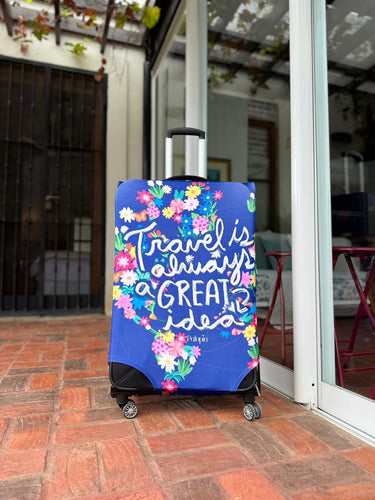 Travel is
always
a GREAT
idea
Palopia